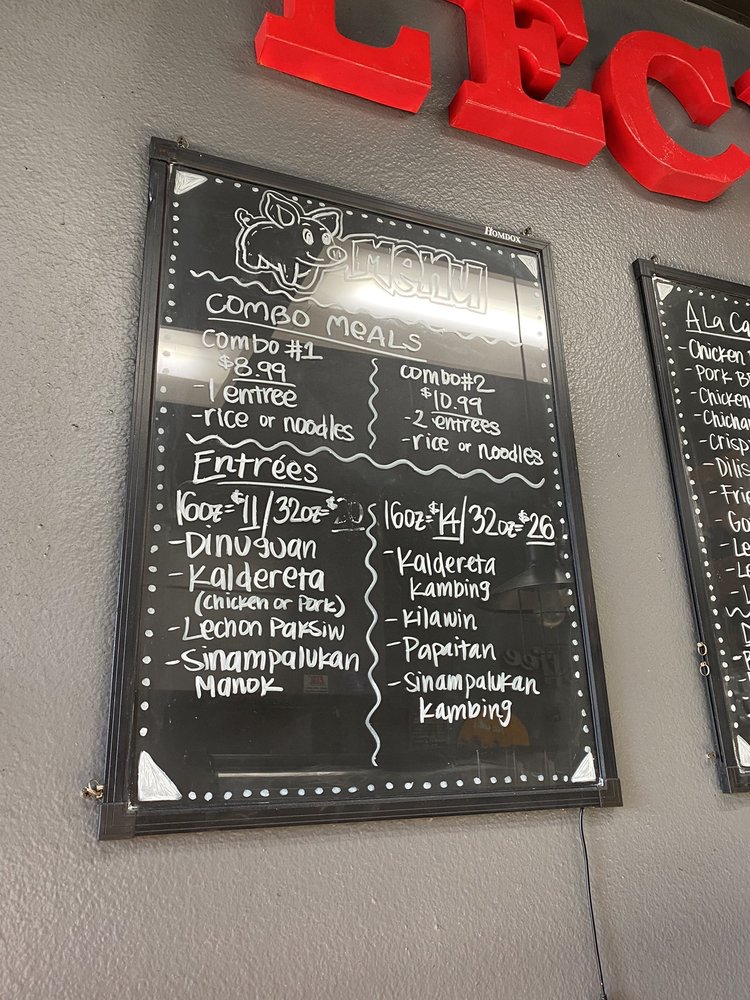 LEC
HOMDOX
Menu
COMBO MEALS
Combo #1
$8.99
-1 entree
-rice or noodles
Combo #2
$10.99
-2 entrees
-rice or noodles
Entrées
16oz=$11/32oz=$20
-Dinuguan
-Kaldereta
(Chicken or Pork)
-Lechon Paksiw
-Sinampalukan
Manok
16oz=$14/32oz=$26
-Kaldereta
Kambing
-Kilawin
-Papaitan
-Sinampalukan
Kambing
A La Ca
-Chicken
-Pork B
-Chicken
-Chicha
-Crisp
-Dilis
-Frie
-Go
-Le
-Le